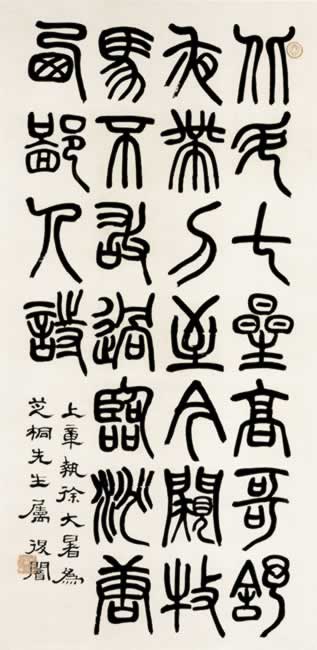 北斗七星高哥舒
夜帶刀至今闚牧
馬不敢過臨洮唐
西鄙人詩
上章執徐大暑為
芝桐先生屬 復闇